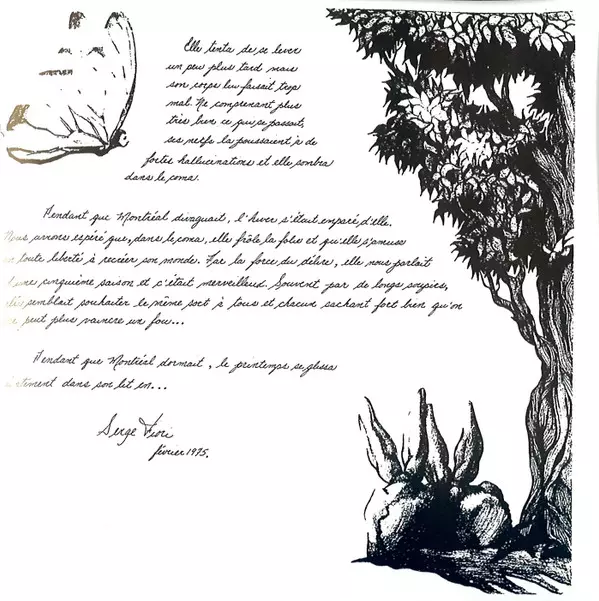 Elle tenta de se lever
un peu plus tard mais
son corps lui faisait trop
mal. Ne comprenant plus
très bien ce qui se passait,
ses nerfs la poussaient à de
fortes hallucinations et elle sombra
dans le coma.
Pendant que Montréal divaguait, l'hiver s'était emparé d'elle.
Nous avons espéré que, dans le coma, elle frôle la folie et qu'elle s'amuse
en toute liberté à recréer son monde. Par la force du délire, elle nous parlait
d'une cinquième saison et c'était merveilleux. Souvent par de longs soupirs,
elle semblait souhaiter le même sort à tous et chacun sachant fort bien qu'on
ne peut plus vaincre un fou...
Pendant que Montréal dormait, le printemps se glissa
dans son lit en...
Serge Fiori
février 1975.